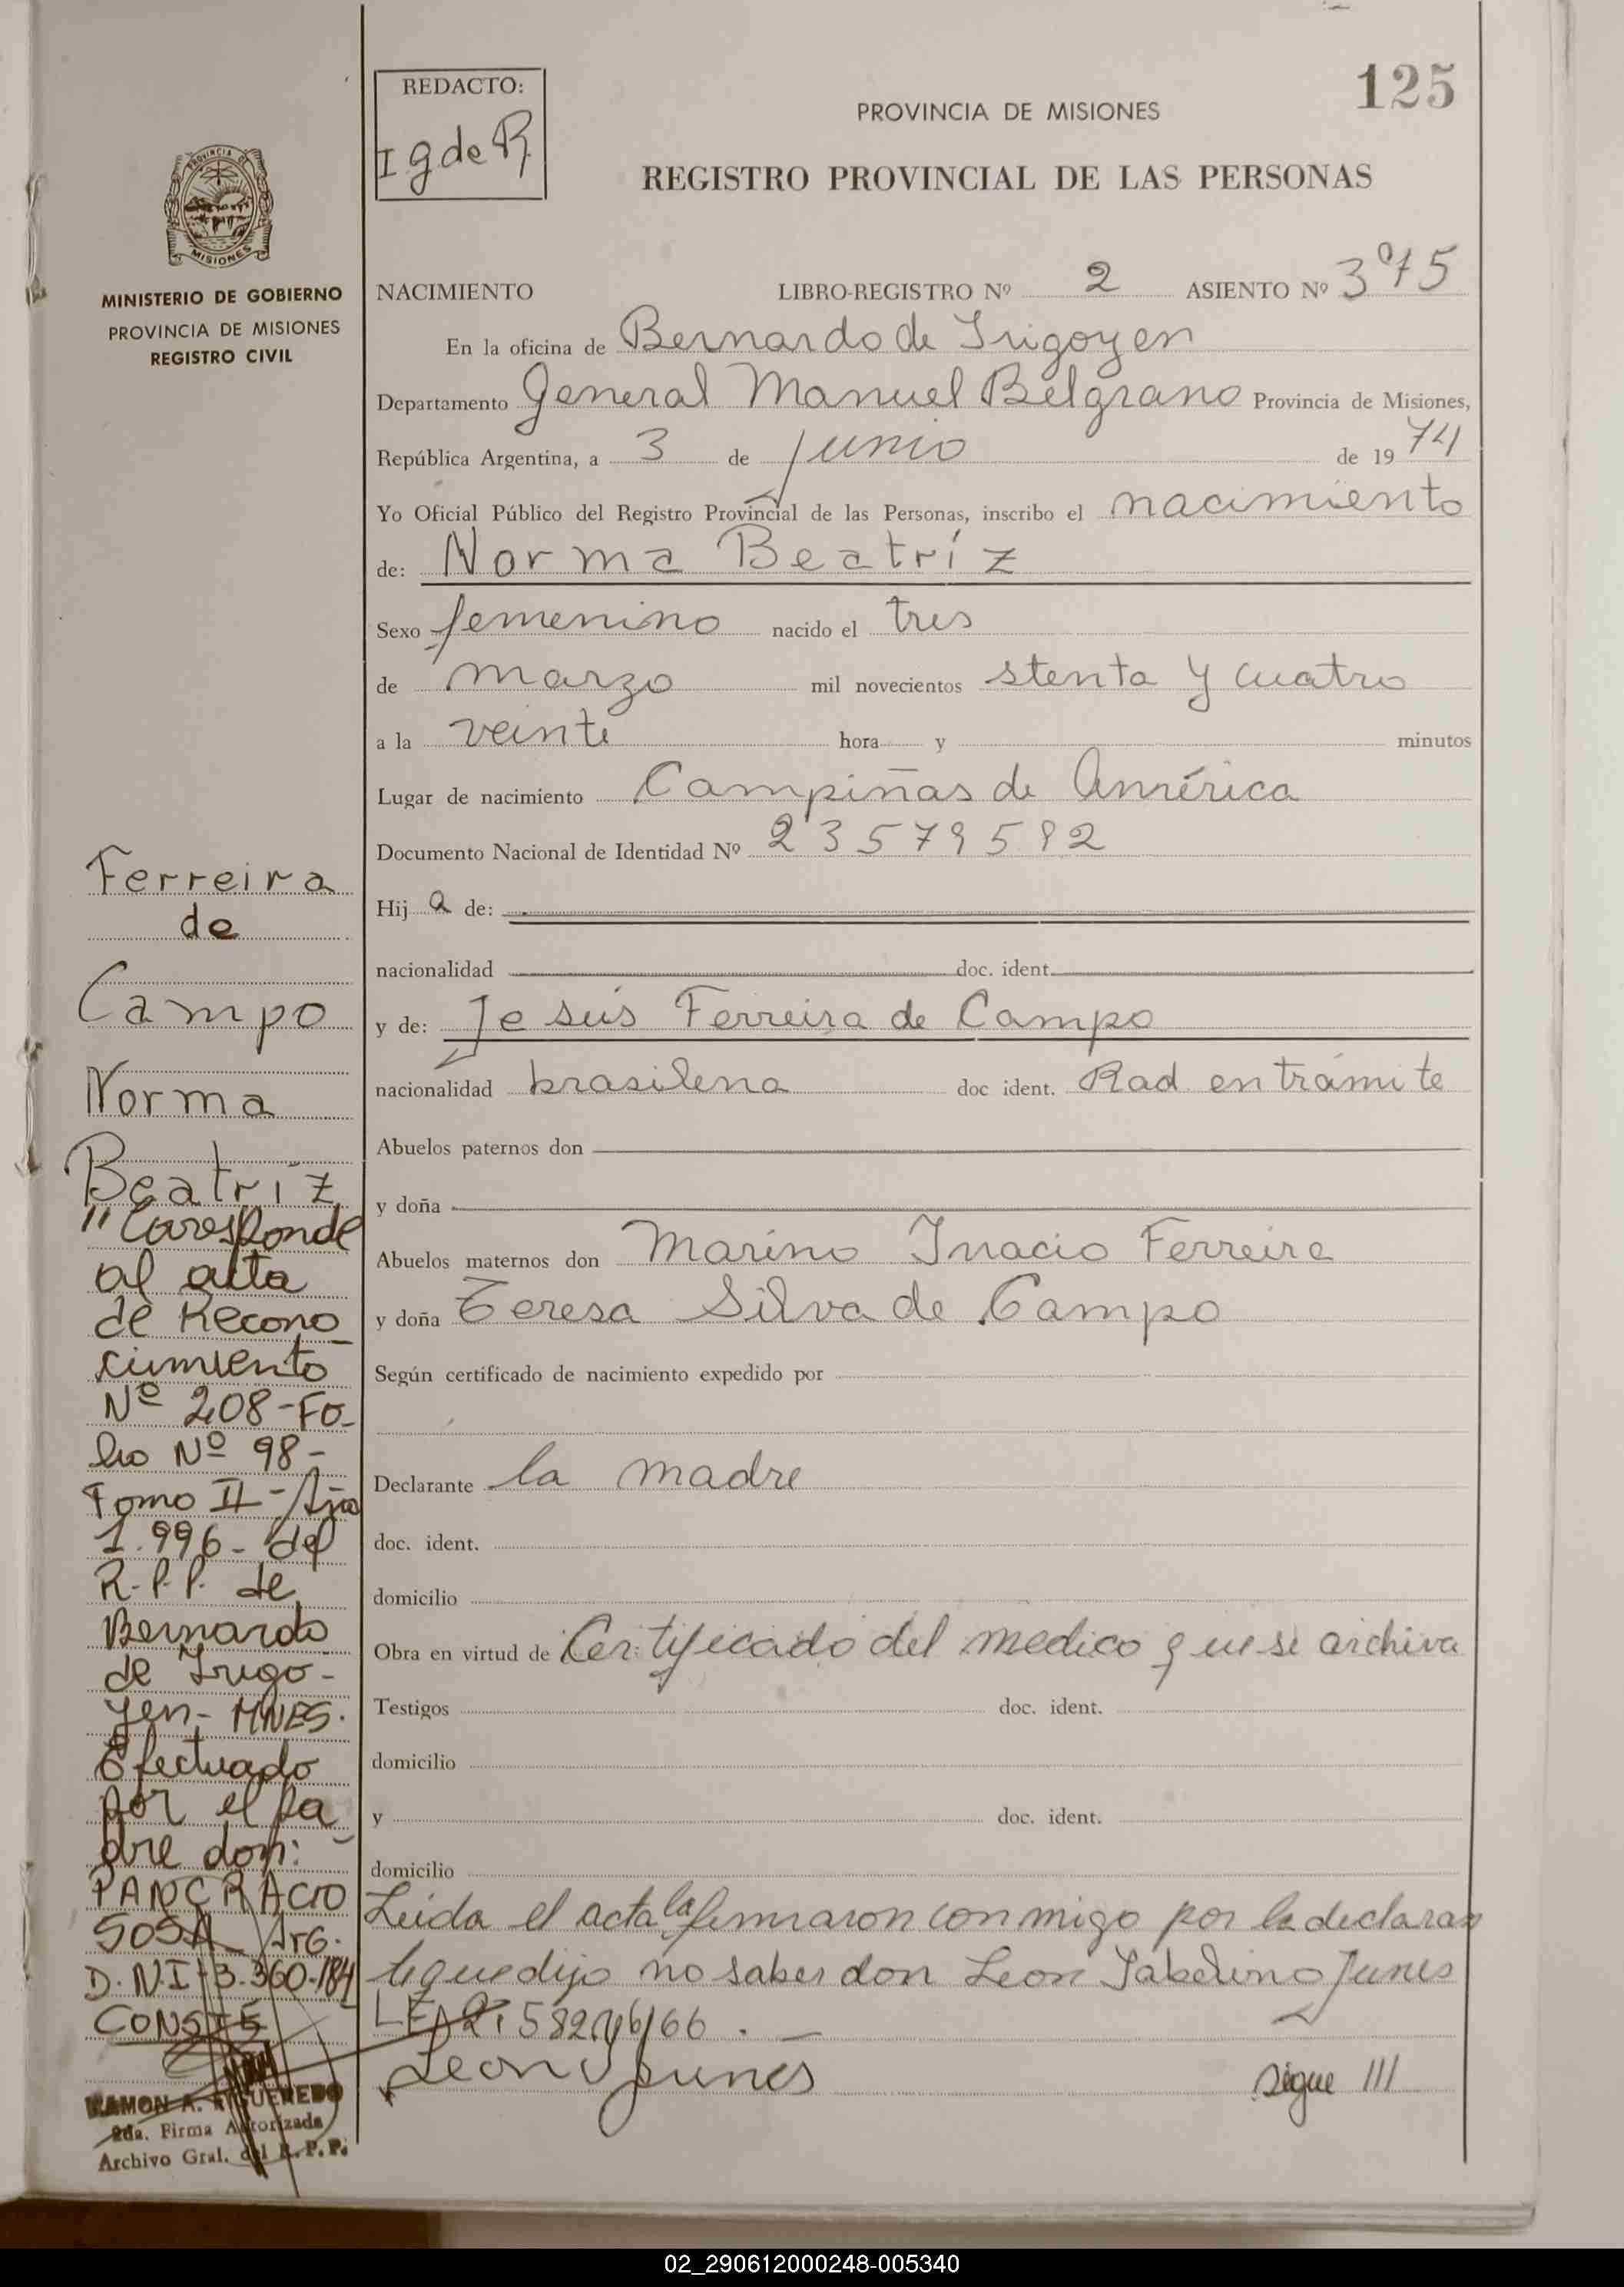 125
REDACTO:
I g de R
PROVINCIA DE MISIONES
REGISTRO PROVINCIAL DE LAS PERSONAS
PROVINCIA DE
MISIONES
MINISTERIO DE GOBIERNO
PROVINCIA DE MISIONES
REGISTRO CIVIL
NACIMIENTO LIBRO-REGISTRO Nº 2 ASIENTO Nº 375
En la oficina de Bernardo de Irigoyen
Departamento General Manuel Belgrano Provincia de Misiones,
República Argentina, a 3 de Junio de 19 74
Yo Oficial Público del Registro Provincial de las Personas, inscribo el nacimiento
de: Norma Beatríz
Sexo femenino nacido el tres
de marzo mil novecientos stenta y cuatro
a la veinte hora y minutos
Lugar de nacimiento Campiñas de América
Documento Nacional de Identidad Nº 23579592
Hij a de:
nacionalidad doc. ident.
y de: Jesús Ferreira de Campo
nacionalidad brasilena doc ident. Rad en trámite
Abuelos paternos don
y doña
Abuelos maternos don Marino Inacio Ferreira
y doña Teresa Silva de Campo
Según certificado de nacimiento expedido por
Declarante la madre
doc. ident.
domicilio
Obra en virtud de Certificado del medico que se archiva
Testigos doc. ident.
domicilio
y doc. ident.
domicilio
Leida el acta la firmaron conmigo por la declaran
te que dijo no saber don Leon Sabelino Junes
LE
Leon Junes
Sigue III
Ferreira
de
Campo
Norma
Beatríz
"Coresponde
al acta
de Recono
cimiento
Nº 208-Fo-
lio Nº 98-
Tomo II-Año
1.996- del
R.P.P. de
Bernardo
de Irigo-
yen- MNES.
Efectuado
por el pa
dre don:
PANCRACIO
SOSA Arg.
D.N.I 3.360.184
CONSTE
RAMON A. FIGUEREDO
2da. Firma Autorizada
Archivo Gral. del R.P.P.
02_290612000248-005340